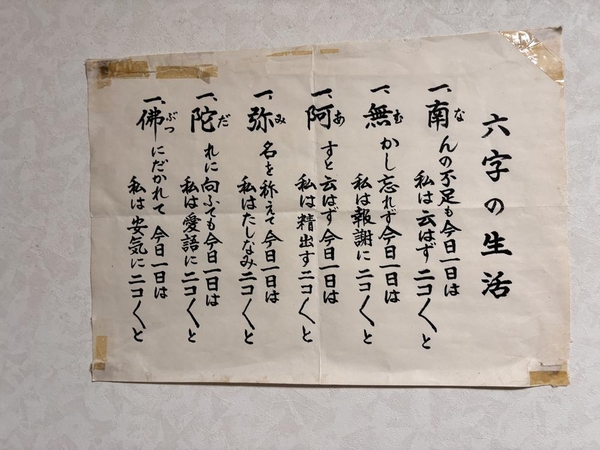 六字の生活
一、南なんの不足も今日一日は
私は云はずニコ〱と
一、無むかし忘れず今日一日は
私は報謝にニコ〱と
一、阿あすと云はず今日一日は
私は精出すニコ〱と
一、弥み名を称えて今日一日は
私はたしなみニコ〱と
一、陀だれに向ふても今日一日は
私は愛語にニコ〱と
一、佛ぶつにだかれて今日一日は
私は安気にニコ〱と